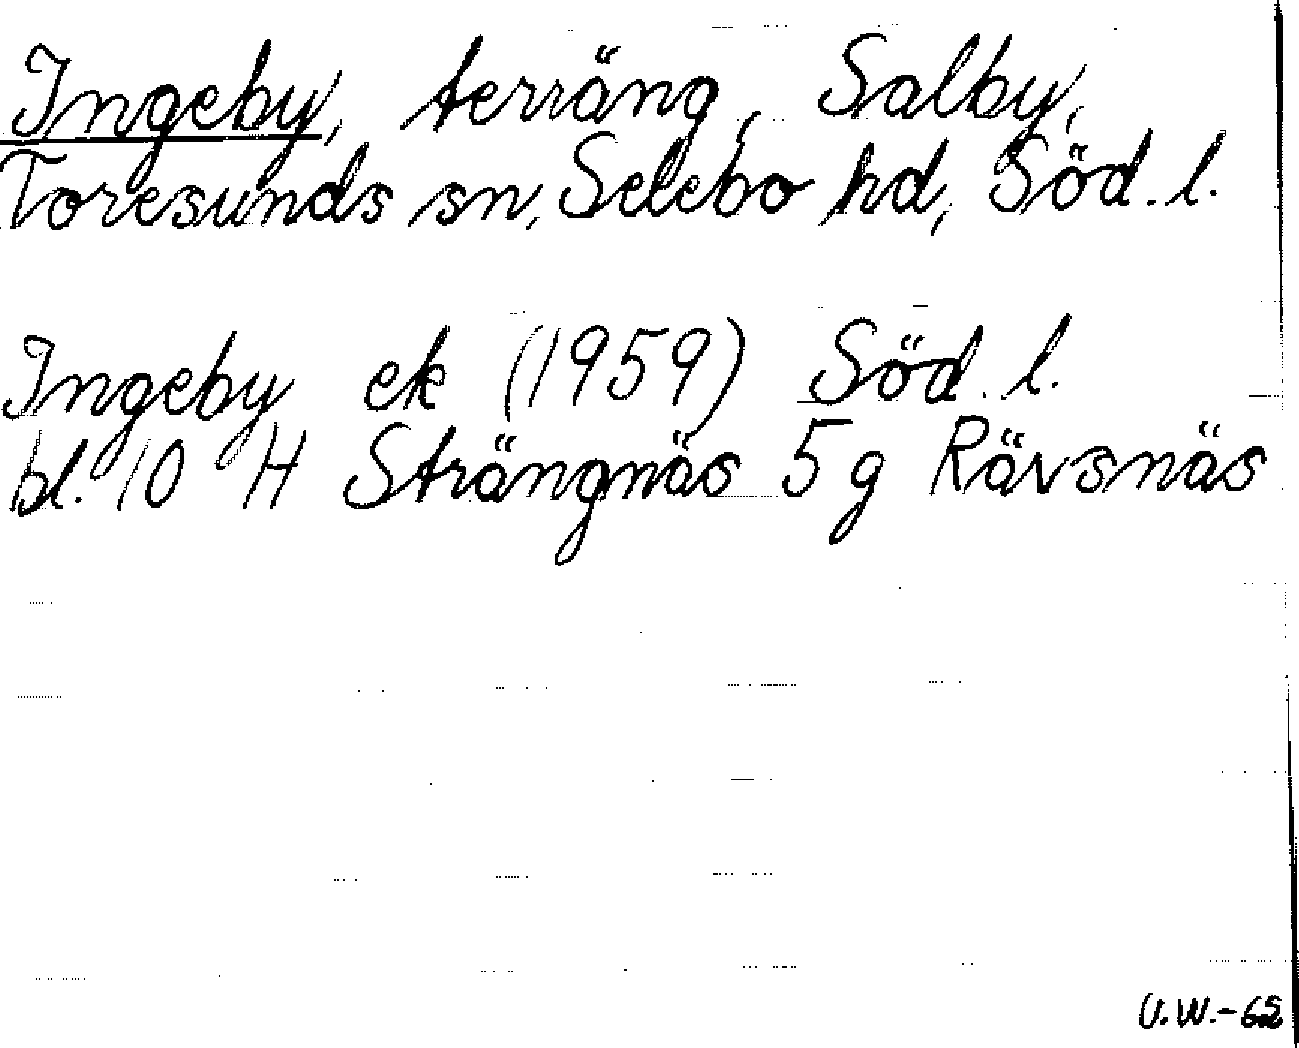 Ingeby, terräng, Salby,
Toresunds sn, Selebo hd, Söd. l.
Ingeby ek (1959) Söd. l.
bl. 10 H Strängnäs 5 g Rävsnäs
U.W.-62